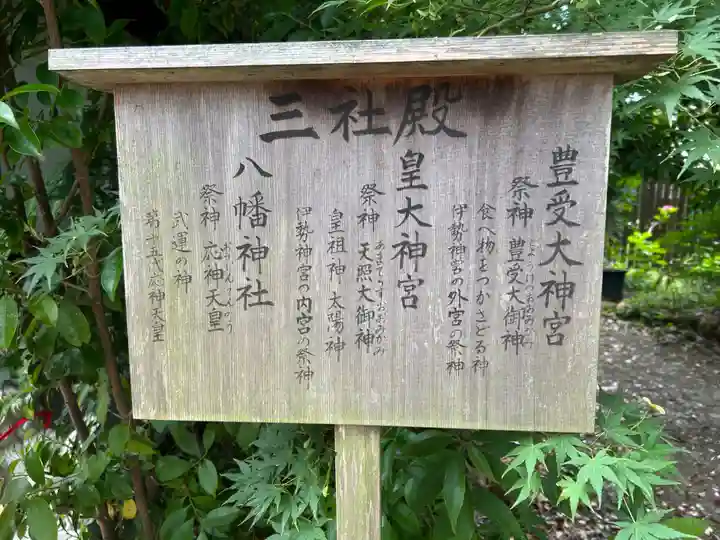 三社殿
豊受大神宮
祭神 豊受大御神
食べ物をつかさどる神
伊勢神宮の外宮の祭神
皇大神宮
祭神 天照大御神
皇祖神 太陽神
伊勢神宮の内宮の祭神
八幡神社
祭神 応神天皇
武運の神
第十五代応神天皇